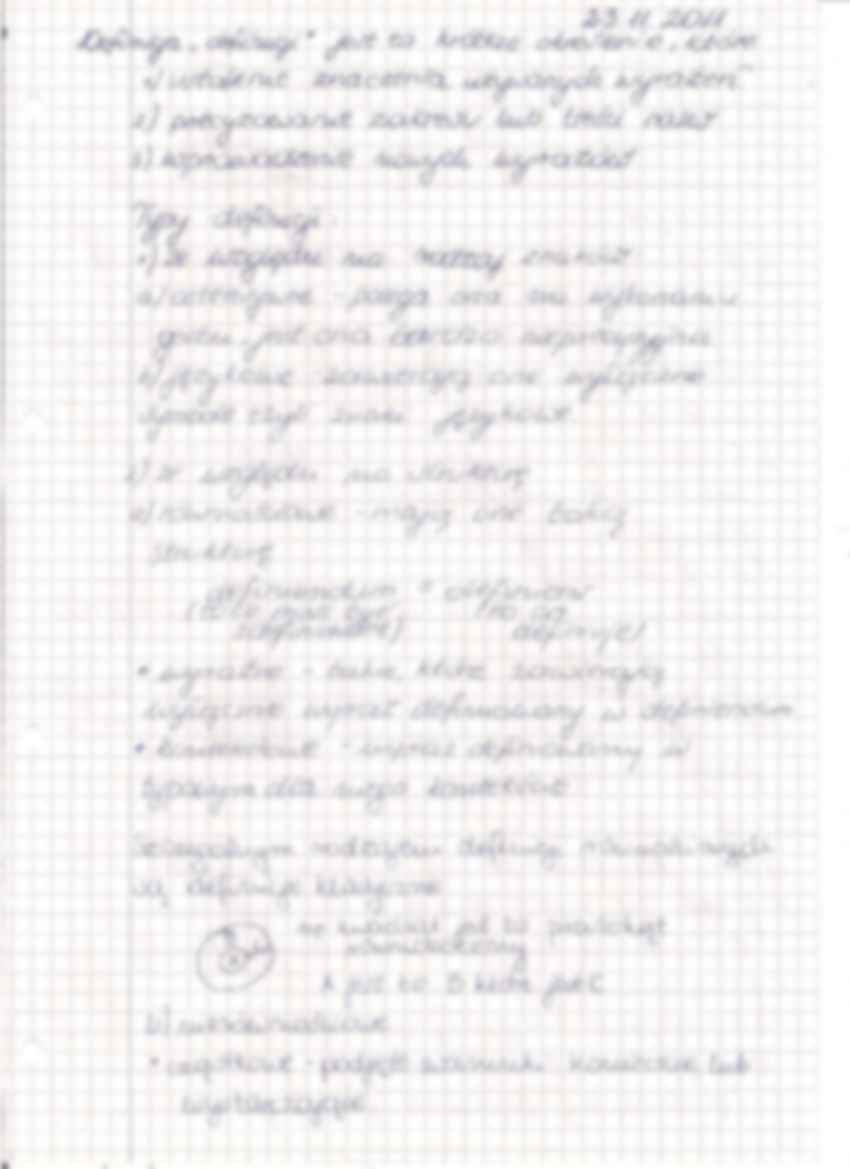 23.11.2011
Definicja "definicji" jest to krótkie określenie, które
1) ustalenie znaczenia używanych wyrażeń
2) precyzowanie zakresu lub treści nazw
3) wprowadzenie nowych wyrażeń
Typy definicji
1) ze względu na rodzaj znaków
a) - polega ona na wykonaniu
gestu, jest ona bardzo nieprecyzyjna
b) językowe zawierają one wyłącznie
czyli znaki językowe
2) ze względu na strukturę
a) równościowe - mają one taką
strukturę
definiendum = definiens
(to co ma być (to co
definiowane) definiuje)
• wyraźne - takie, które zawierają
wyłącznie wyraz definiowany w definiendum
• kontekstowe - wyraz definiowany w
typowym dla niego kontekście
Szczególnym rodzajem definicji równościowych
są definicje klasyczne
np kwadrat jest to prostokąt
równoboczny
A jest to B które jest C
b) nierównościowe
• cząstkowe - podaje warunki konieczne lub
wystarczające